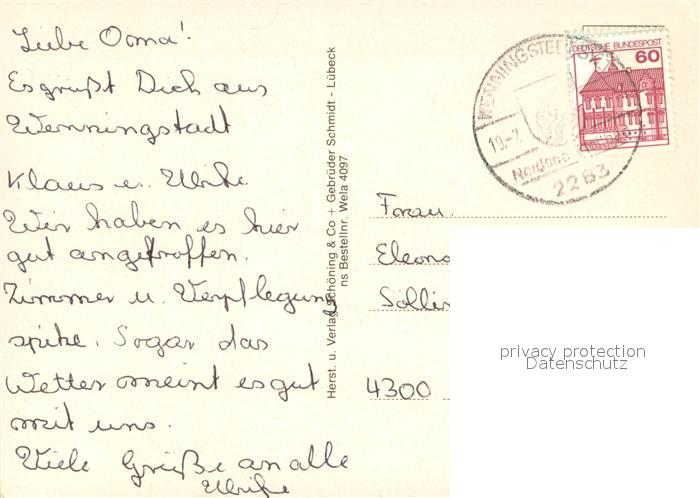 Liebe Ooma!
Es grüßt Dich aus
Wenningstadt
Klaus u. Ulrike
Wir haben es hier
gut angetroffen.
Zimmer u. Verpflegung
spitze. Sogar das
Wetter meint es gut
mit uns.
Viele Grüße an alle
Ulrike
Herst. u. Verlag Schöning & Co + Gebrüder Schmidt - Lübeck
ns Bestellnr. Wela 4097
DEUTSCHE BUNDESPOST
60
WENNINGSTEDT
19.-7.
Nordsee
2283
Frau
Eleono
Sölli
4300
privacy protection
Datenschutz